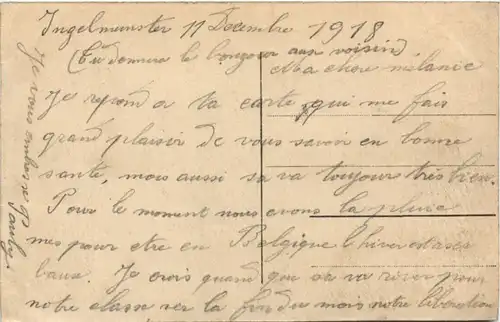 Ingelmunster 11 Decembre 1918
(Tu donnera le bonjour aux voisin)
Ma chere mélanie
Je repond a ta carte qui me fais
grand plaisir de vous savoir en bonne
sante, mois aussi sa va toujour très bien.
Pour le moment nous avons la pluie
mes pour etre en Belgique l'hiver est asés
baux. Je crois quand que sa va river pour
notre classe ver la fin du mois notre libération
Je vous embrasse